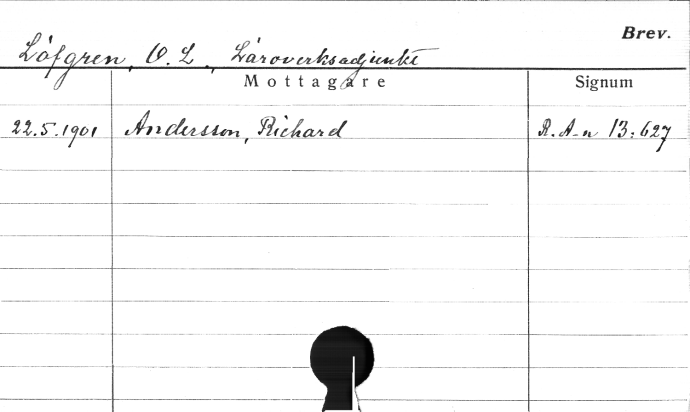 Brev.
Löfgren, O. L., Läroverksadjunkt
Mottagare Signum
22.5.1901 Andersson, Richard R. A-n 13:627